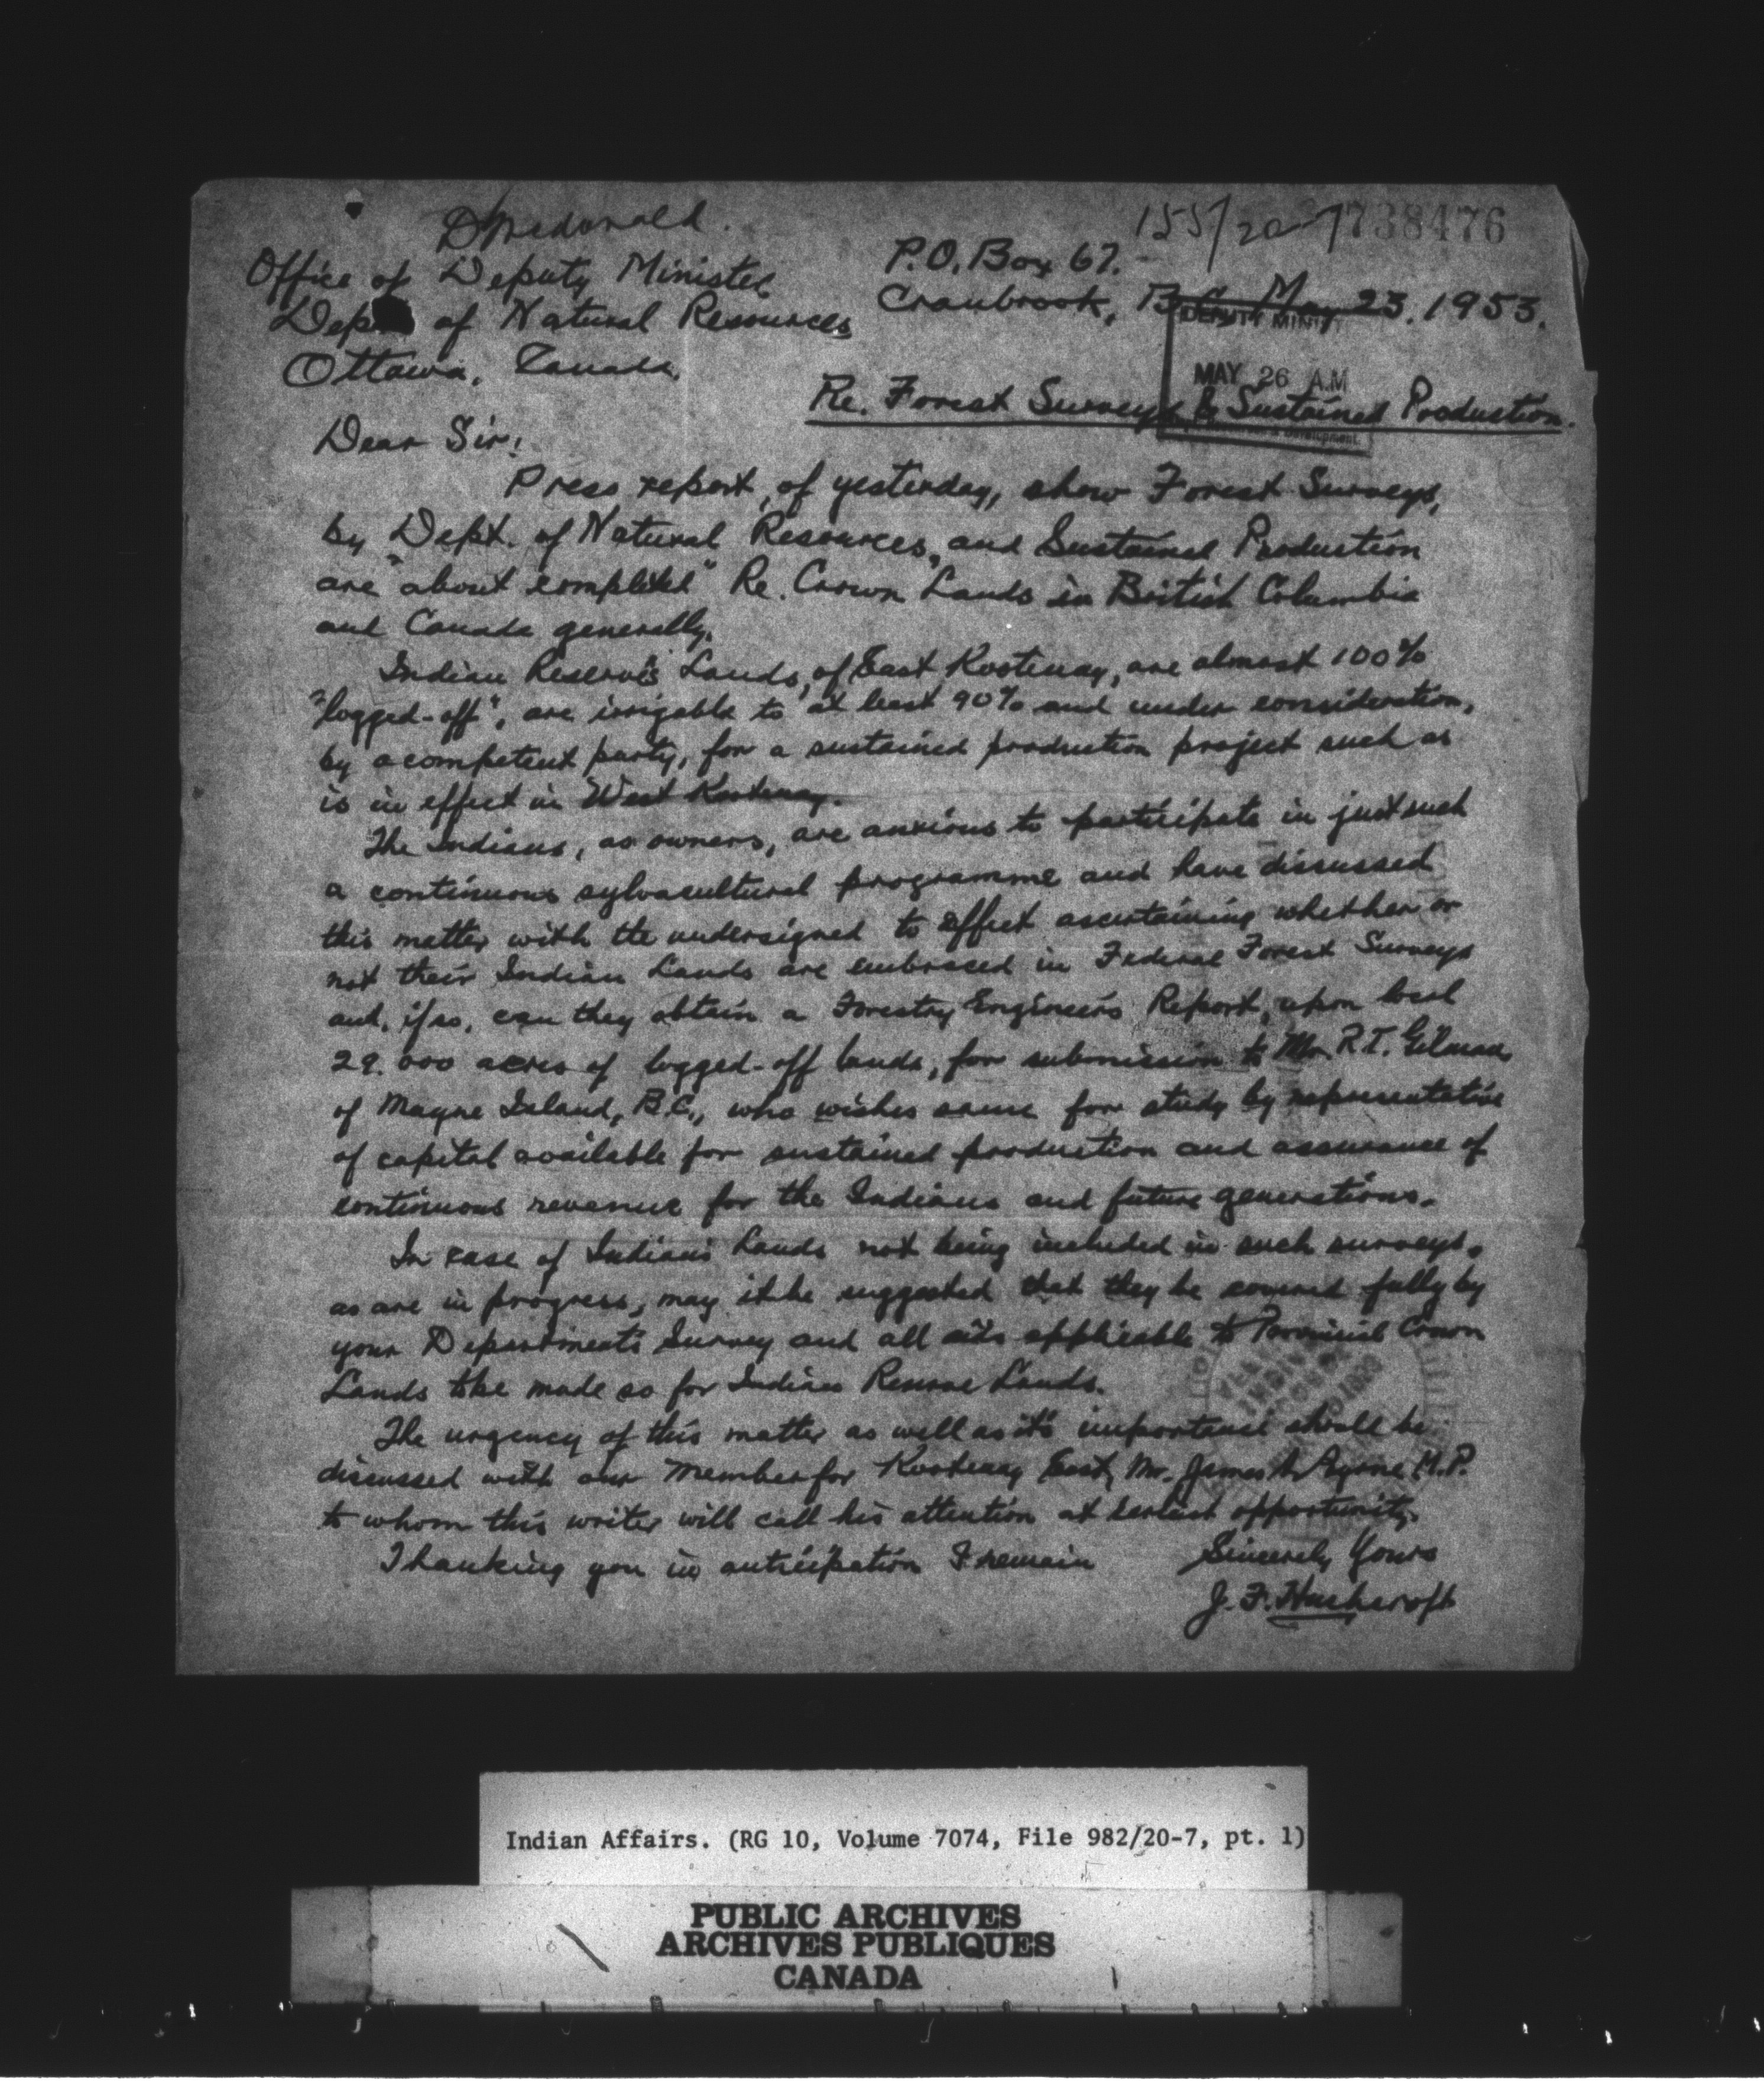 D McDonald.
155/20-7 738476
Office of Deputy Minister
Dept of Natural Resources
Ottawa, Canada.
P.O. Box 67.
Cranbrook, B.C. May 23. 1953.
DEPUTY MINIST
MAY 26 A.M
Re. Forest Surveys & Sustained Production.
Dear Sir:
Press report, of yesterday, show Forest Surveys,
by Dept. of Natural Resources, and Sustained Production
are "about completed" Re. Crown Lands in British Columbia
and Canada generally.
Indian Reserve's Lands, of East Kootenay, are almost 100%
"logged-off", are irrigable to at least 90% and under consideration,
by a competent party, for a sustained production project such as
is in effect in West Kootenay.
The Indians, as owners, are anxious to participate in just such
a continuous sylvacultural programme and have discussed
this matter with the undersigned to effect ascertaining whether or
not their Indian Lands are embraced in Federal Forest Surveys
and, if so, can they obtain a Forestry Engineers Report, upon local
29.000 acres of logged-off lands, for submission to Mr. R.T. Gilman
of Mayne Island, B.C., who wishes same for study by representative
of capital available for sustained production and assurance of
continuous revenue for the Indians and future generations.
In case of Indians Lands not being included in such surveys,
as are in progress, may it be suggested that they be covered fully by
your Department's Survey and all acts applicable to Provincial Crown
Lands to be made so for Indian Reserve Lands.
The urgency of this matter as well as it's importance should be
discussed with our Member for Kootenay East, Mr. James A Byrne M.P.
to whom this writer will call his attention at earliest opportunity.
Thanking you in anticipation I remain Sincerely Yours
J. F. Hushcroft
Indian Affairs. (RG 10, Volume 7074, File 982/20-7, pt. 1)
PUBLIC ARCHIVES
ARCHIVES PUBLIQUES
CANADA